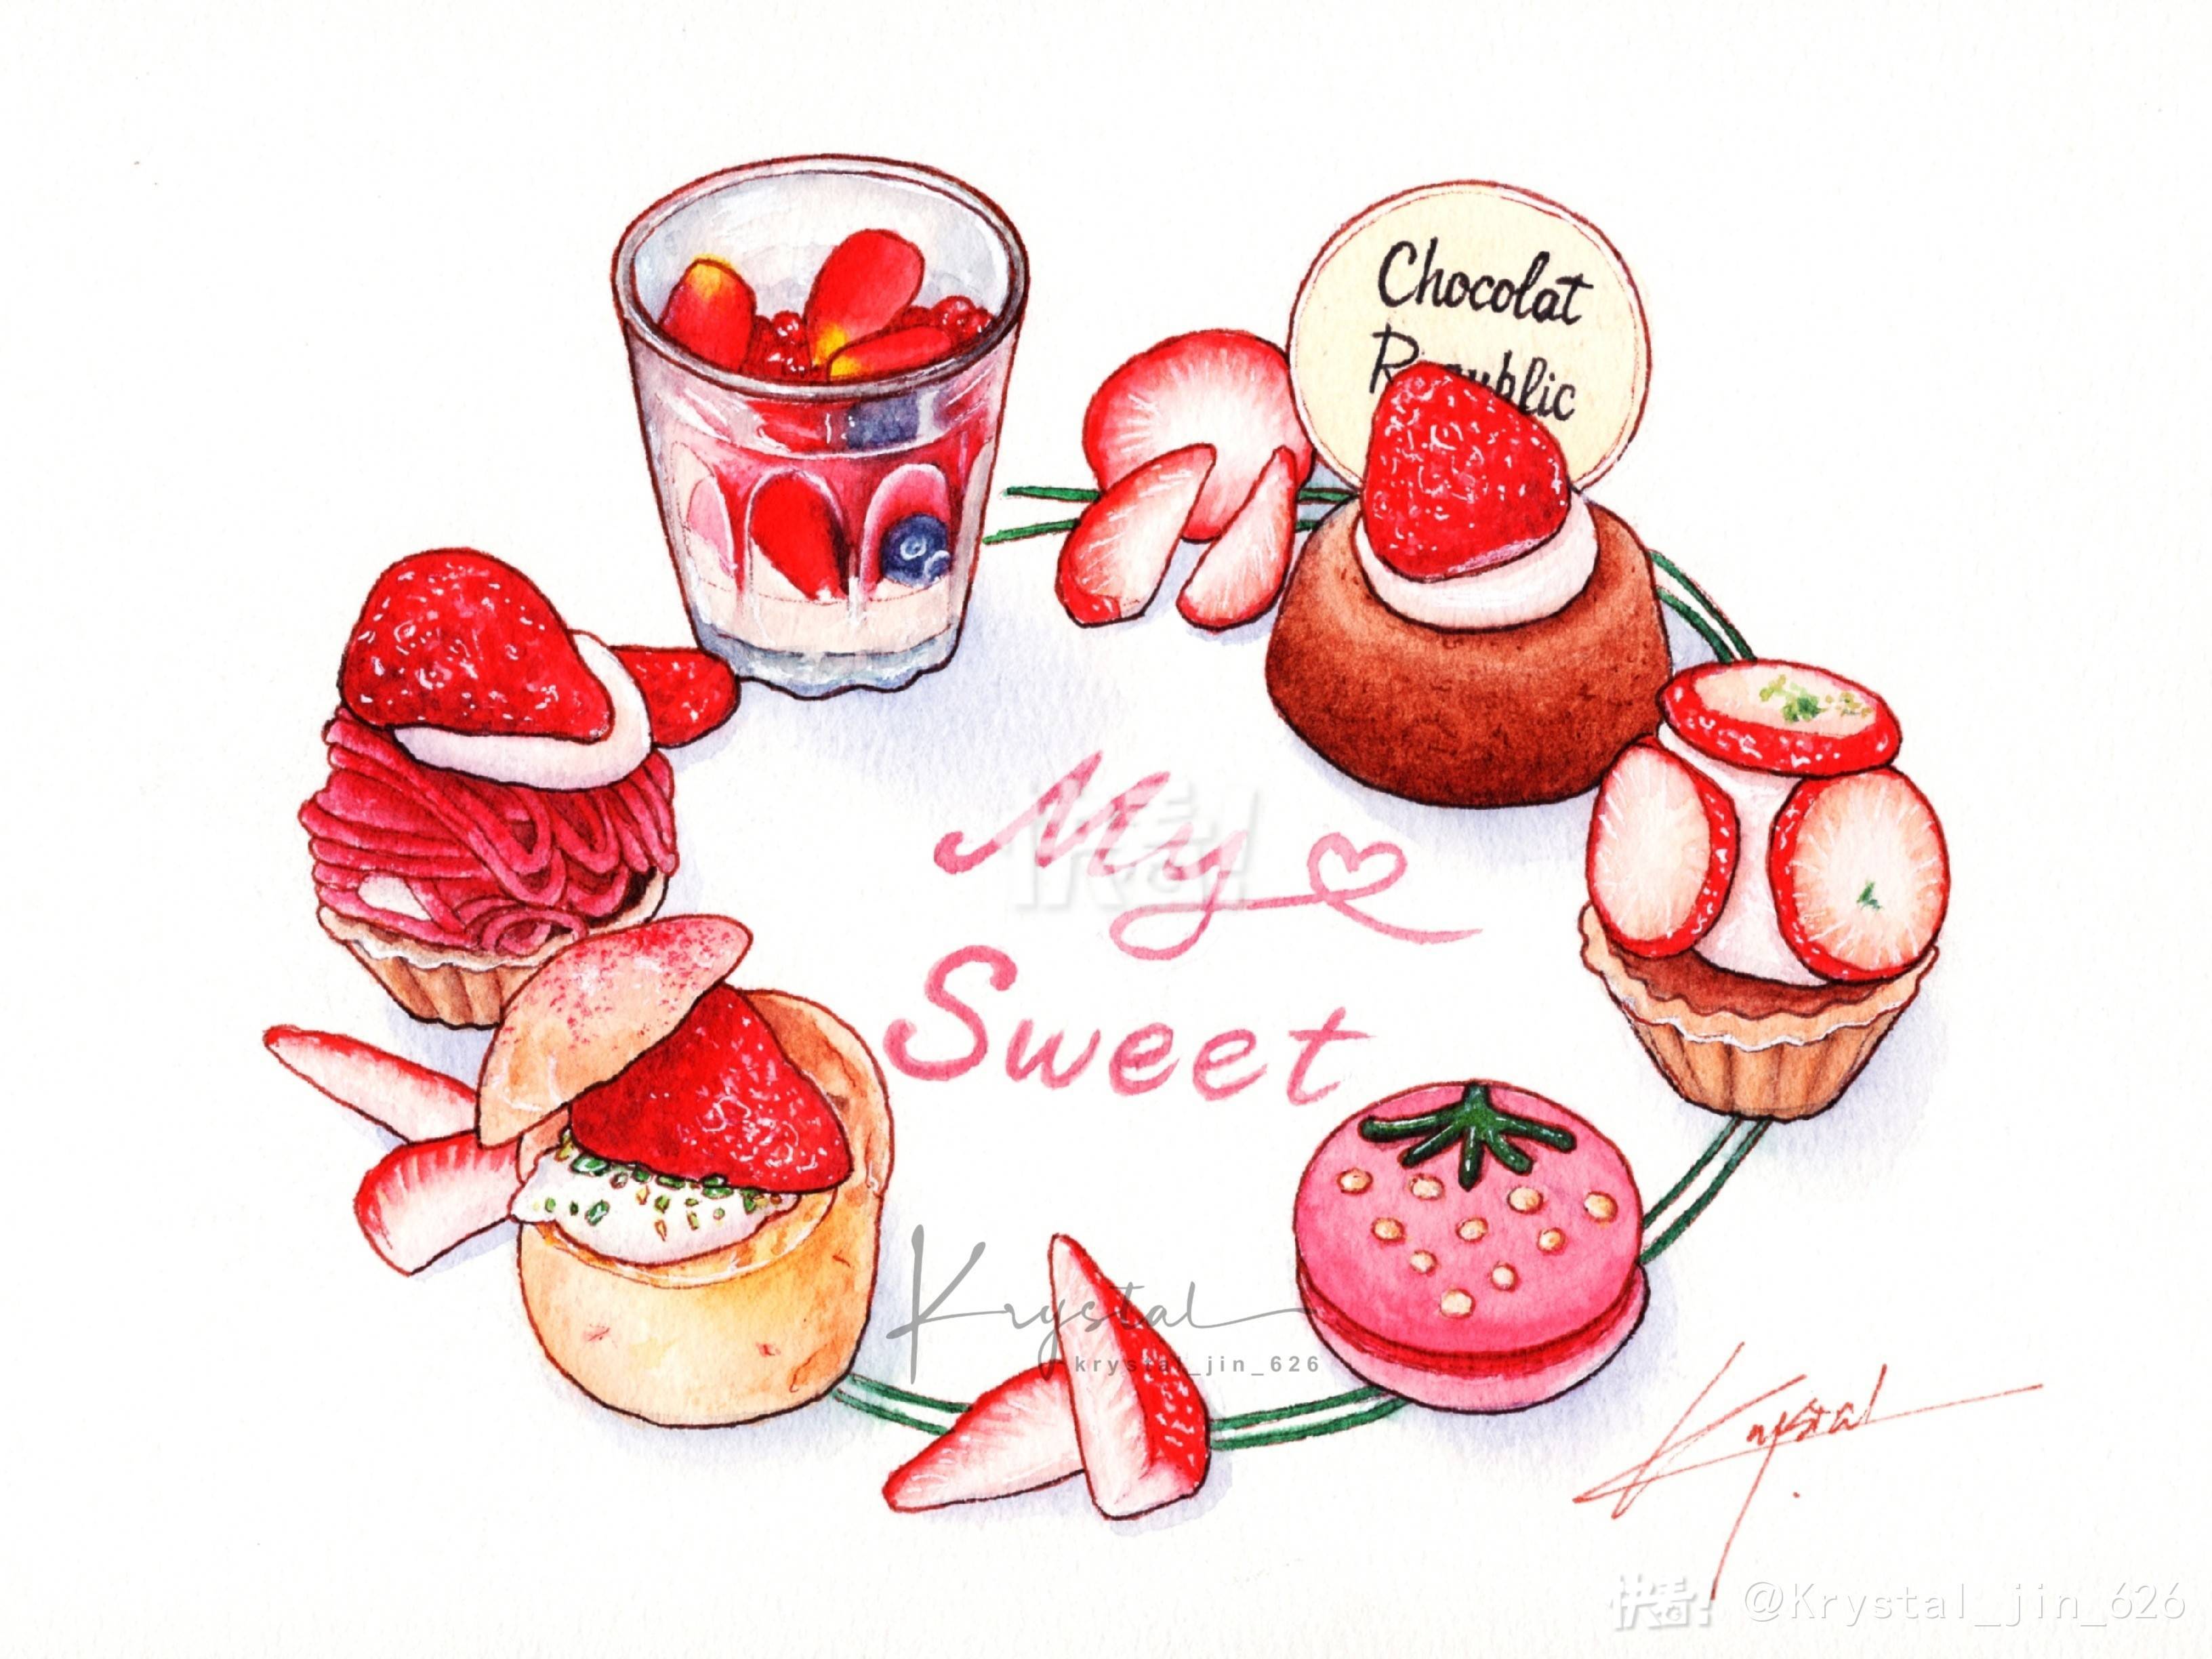 Chocolat
Republic
My
快看!
Sweet
Krystal
krystal_jin_626
Krystal
快看! @Krystal_jin_626